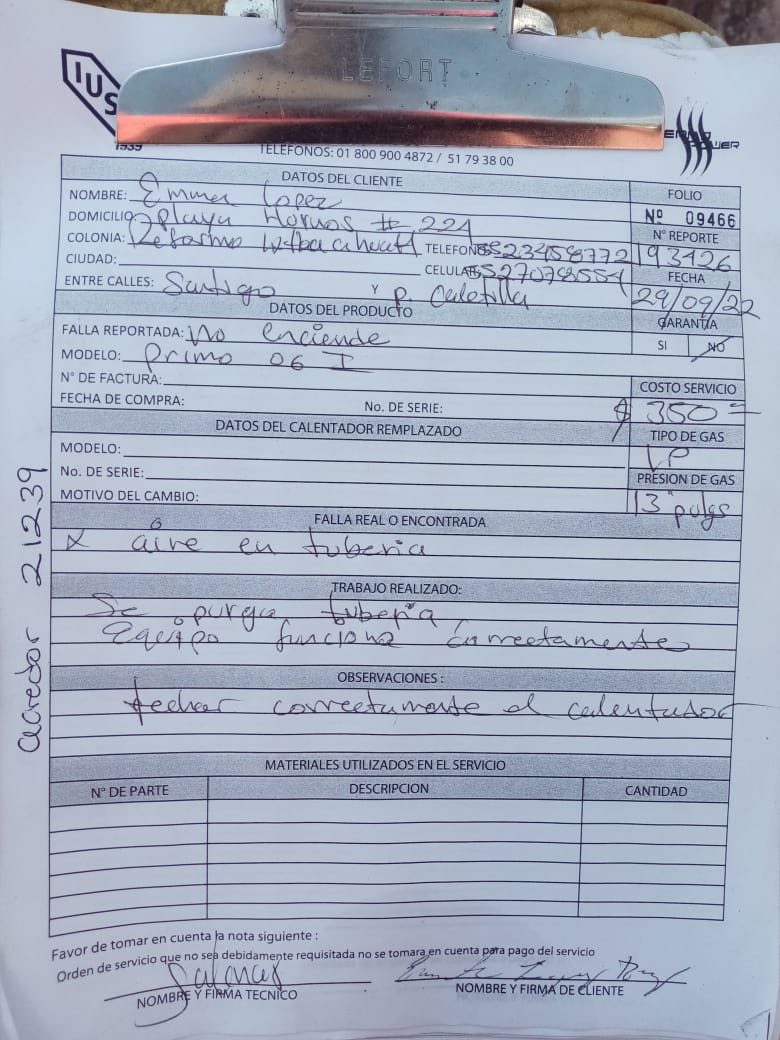 LEFORT
IUS
1939
POWER
TELEFONOS: 01 800 900 4872 / 51 79 38 00
DATOS DEL CLIENTE
NOMBRE: Emma Lopez
DOMICILIO: playa Hornos # 221
COLONIA: Reforma TELEFONO: 5523458772
CIUDAD: CELULAR: 5527078554
ENTRE CALLES: Santigo Y p. Caletilla
FOLIO
Nº 09466
N° REPORTE
193426
FECHA
29/09/22
DATOS DEL PRODUCTO
GARANTIA
SI NO
FALLA REPORTADA: No enciende
MODELO: primo 06 I
N° DE FACTURA:
FECHA DE COMPRA: No. DE SERIE:
COSTO SERVICIO
$ 350=
DATOS DEL CALENTADOR REMPLAZADO
TIPO DE GAS
LP
MODELO:
No. DE SERIE:
MOTIVO DEL CAMBIO:
PRESION DE GAS
13" pulgs
FALLA REAL O ENCONTRADA
x aire en tuberia
TRABAJO REALIZADO:
Se purga tuberia,
Equipo funciona correctamente
OBSERVACIONES :
techar correctamente el calentador
MATERIALES UTILIZADOS EN EL SERVICIO
N° DE PARTE DESCRIPCION CANTIDAD
Favor de tomar en cuenta la nota siguiente :
Orden de servicio que no sea debidamente requisitada no se tomara en cuenta para pago del servicio
Salinas
NOMBRE Y FIRMA TECNICO NOMBRE Y FIRMA DE CLIENTE
acredor 21239